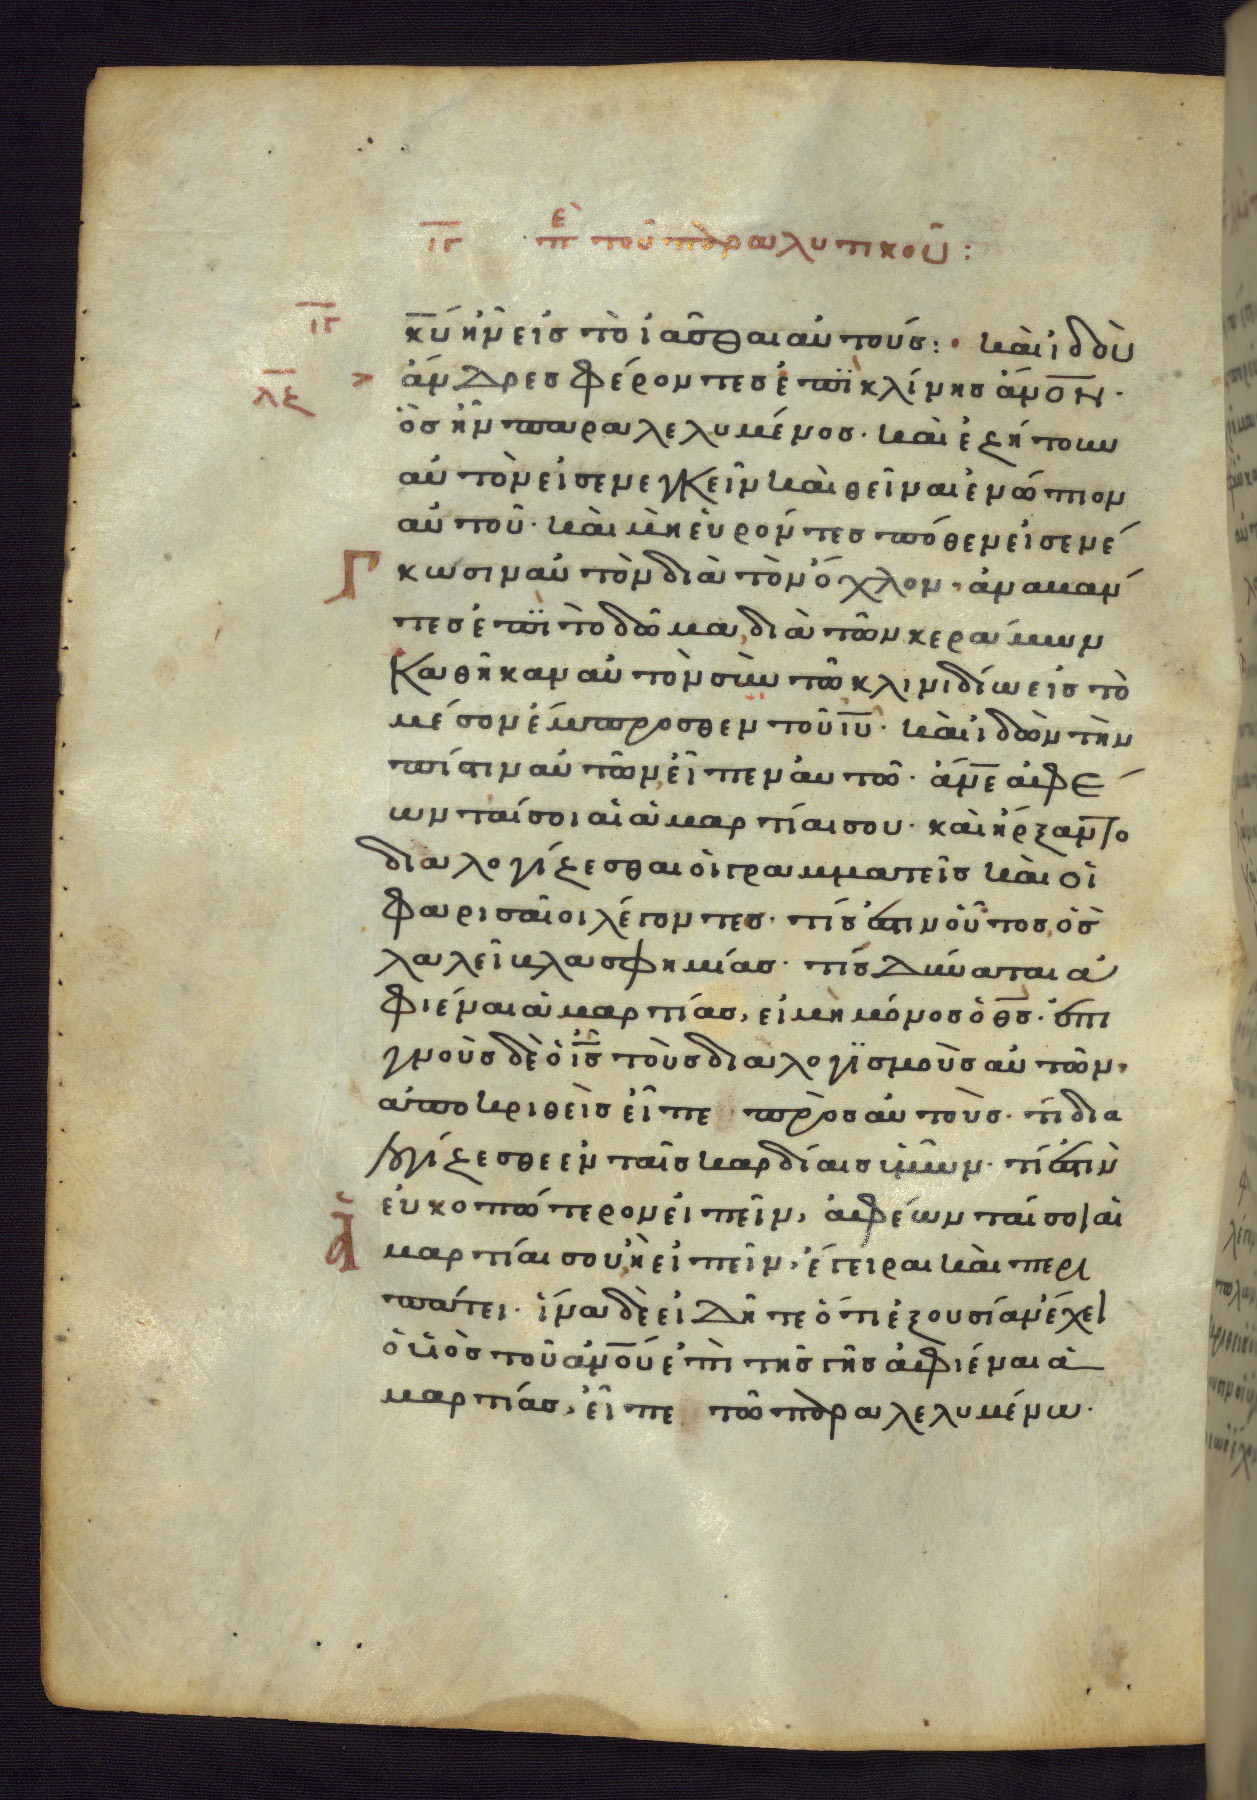 ιγ πε τοῦ παραλυτικοῦ:
ιγ κυ ἦν εἰς τὸ ἰᾶσθαι αὐτούς: καὶ ἰδοὺ
λϛ ἄνδρες φέροντες ἐπὶ κλίνης ἄνον·
ὃς ἦν παραλελυμένος· καὶ ἐζήτουν
αὐτὸν εἰσενεγκεῖν καὶ θεῖναι ἐνώπιον
αὐτοῦ· καὶ μὴ εὑρόντες πόθεν εἰσενέ
Γ κωσιν αὐτὸν διὰ τὸν ὄχλον, ἀναβάν
τες ἐπὶ τὸ δῶμα, διὰ τῶν κεράμων
καθῆκαν αὐτὸν σὺν τῶ κλινιδίω εἰς τὸ
μέσον ἔμπροσθεν τοῦ ιυ· καὶ ἰδὼν τὴν
πίστιν αὐτῶν, εἶπεν αὐτῶ· ἄνε ἀφέ
ωνταί σοι αἱ ἁμαρτίαι σου· καὶ ἤρξαντο
διαλογίζεσθαι οἱ γραμματεῖς καὶ οἱ
φαρισαῖοι λέγοντες· τίς ἐστιν οὗτος, ὃς
λαλεῖ βλασφημίας· τίς δύναται ἀ
φιέναι ἁμαρτίας, εἰ μὴ μόνος ὁ θς· ἐπι
γνοὺς δὲ ὁ ις τοὺς διαλογισμοὺς αὐτῶν,
ἀποκριθεὶς εἶπε πρὸς αὐτοὺς· τί δια
λογίζεσθε ἐν ταῖς καρδίαις ὑμῶν· τί ἐστιν
εὐκοπώτερον εἰπεῖν, ἀφέωνταί σοι αἱ
ἁ μαρτίαι σου, ἢ εἰπεῖν, ἔγειραι καὶ περι
πάτει· ἵνα δὲ εἰδῆτε ὅτι ἐξουσίαν ἔχει
ὁ υἱὸς τοῦ ἀνου ἐπὶ τῆς γῆς ἀφιέναι ἁ
μαρτίας, εἶπε τῶ παραλελυμένω·